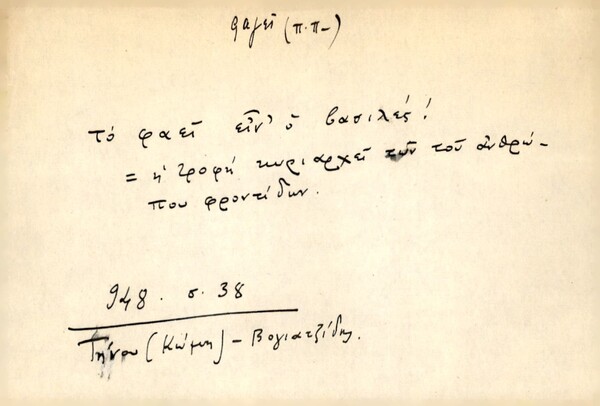 φαγεῖ (π.π-)
τό φαεῖ εἶν' ὁ βασιλές!
= ἡ τροφή κυριαρχεῖ τῶν τοῦ ἀνθρώ-
που φροντίδων.
948. σ. 38
Τήνου (Κώμη) - Βογιατζίδης.